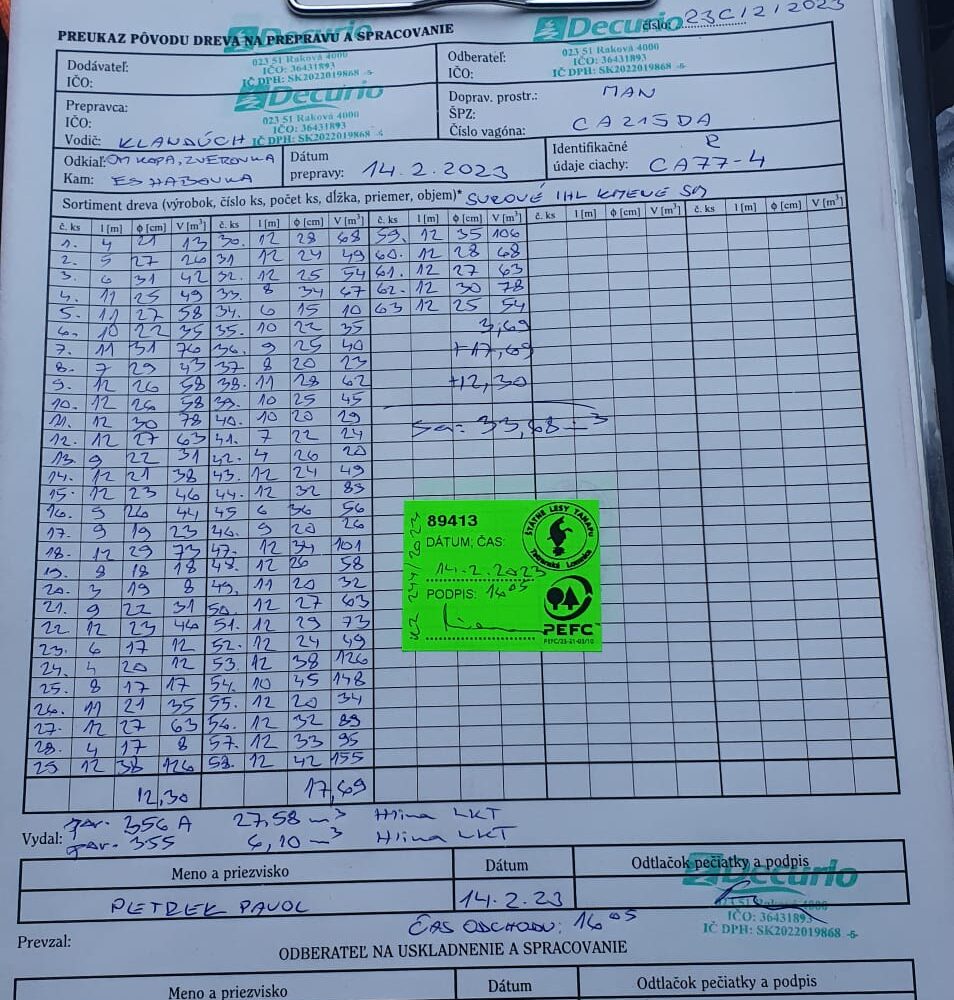 Decurio
Decurio
číslo: 23C/2/2023
PREUKAZ PÔVODU DREVA NA PREPRAVU A SPRACOVANIE
Dodávateľ:
IČO:
023 51 Raková 4000
IČO: 36431893
IČ DPH: SK2022019868 -6-
Odberateľ:
IČO:
023 51 Raková 4000
IČO: 36431893
IČ DPH: SK2022019868 -6-
Decurio
Prepravca:
IČO:
023 51 Raková 4000
IČO: 36431893
IČ DPH: SK2022019868 -6-
Vodič: KLANDÚCH
Doprav. prostr.: MAN
ŠPZ:
Číslo vagóna: CA215DA
Odkiaľ: OM KOPA, ZVEROVKA
Kam: ES HABOVKA
Dátum
prepravy: 14.2.2023
Identifikačné R
údaje ciachy: CA77-4
Sortiment dreva (výrobok, číslo ks, počet ks, dĺžka, priemer, objem)* SUROVÉ IHL KMENE SM
č. ks l [m] ϕ [cm] V [m³] č. ks l [m] ϕ [cm] V [m³] č. ks l [m] ϕ [cm] V [m³] č. ks l [m] ϕ [cm] V [m³] č. ks l [m] ϕ [cm] V [m³]
1. 4 21 13 30. 12 28 68 59. 12 35 106
2. 5 27 26 31 12 24 49 60. 12 28 68
3. 6 31 42 32. 12 25 54 61. 12 27 63
4. 11 25 49 33. 8 34 67 62. 12 30 78
5. 11 27 58 34. 6 15 10 63 12 25 54
6. 10 22 35 35. 10 22 35 3,69
7. 11 31 76 36. 9 25 40 +17,69
8. 7 29 43 37. 8 20 23
9. 12 26 58 38. 11 28 62 +12,30
10. 12 26 58 39. 10 25 45
11. 12 30 78 40. 10 20 29 = 33,68 m³
12. 12 27 63 41. 7 22 24
13. 9 22 31 42. 4 26 20
14. 12 21 38 43. 12 24 49
15. 12 23 46 44. 12 32 89
16. 9 26 44 45 6 36 56
17. 9 19 23 46. 9 20 26
18. 12 29 73 47. 12 34 101
19. 8 18 18 48. 12 26 58
20. 3 19 8 49. 11 20 32
21. 9 22 31 50. 12 27 63
22 12 23 46 51. 12 29 73
23. 6 17 12 52. 12 24 49
24. 4 20 12 53. 12 38 126
25. 8 17 17 54. 10 45 148
26. 11 21 35 55. 12 20 34
27. 12 27 63 56. 12 32 89
28. 4 17 8 57. 12 33 95
29 12 38 126 58. 12 42 155
12,30 17,69
89413
DÁTUM; ČAS:
14.2.2023
PODPIS: 14 05
ŠTÁTNE LESY TANAPU
Tatranská Lomnica
PEFC
Vydal:
356 A 27,58 m³ Hlina LKT
355 6,10 m³ Hlina LKT
Meno a priezvisko Dátum Odtlačok pečiatky a podpis
PETREK PAVOL 14.2.23
Decurio
023 51 Raková 4000
IČO: 36431893
IČ DPH: SK2022019868 -6-
ČAS ODCHODU: 14 05
Prevzal:
ODBERATEĽ NA USKLADNENIE A SPRACOVANIE
Meno a priezvisko Dátum Odtlačok pečiatky a podpis